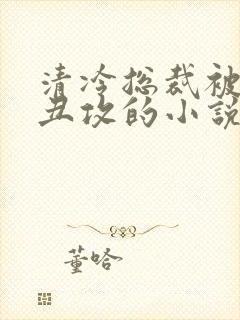 清冷总裁被
丑攻的小說
董哈